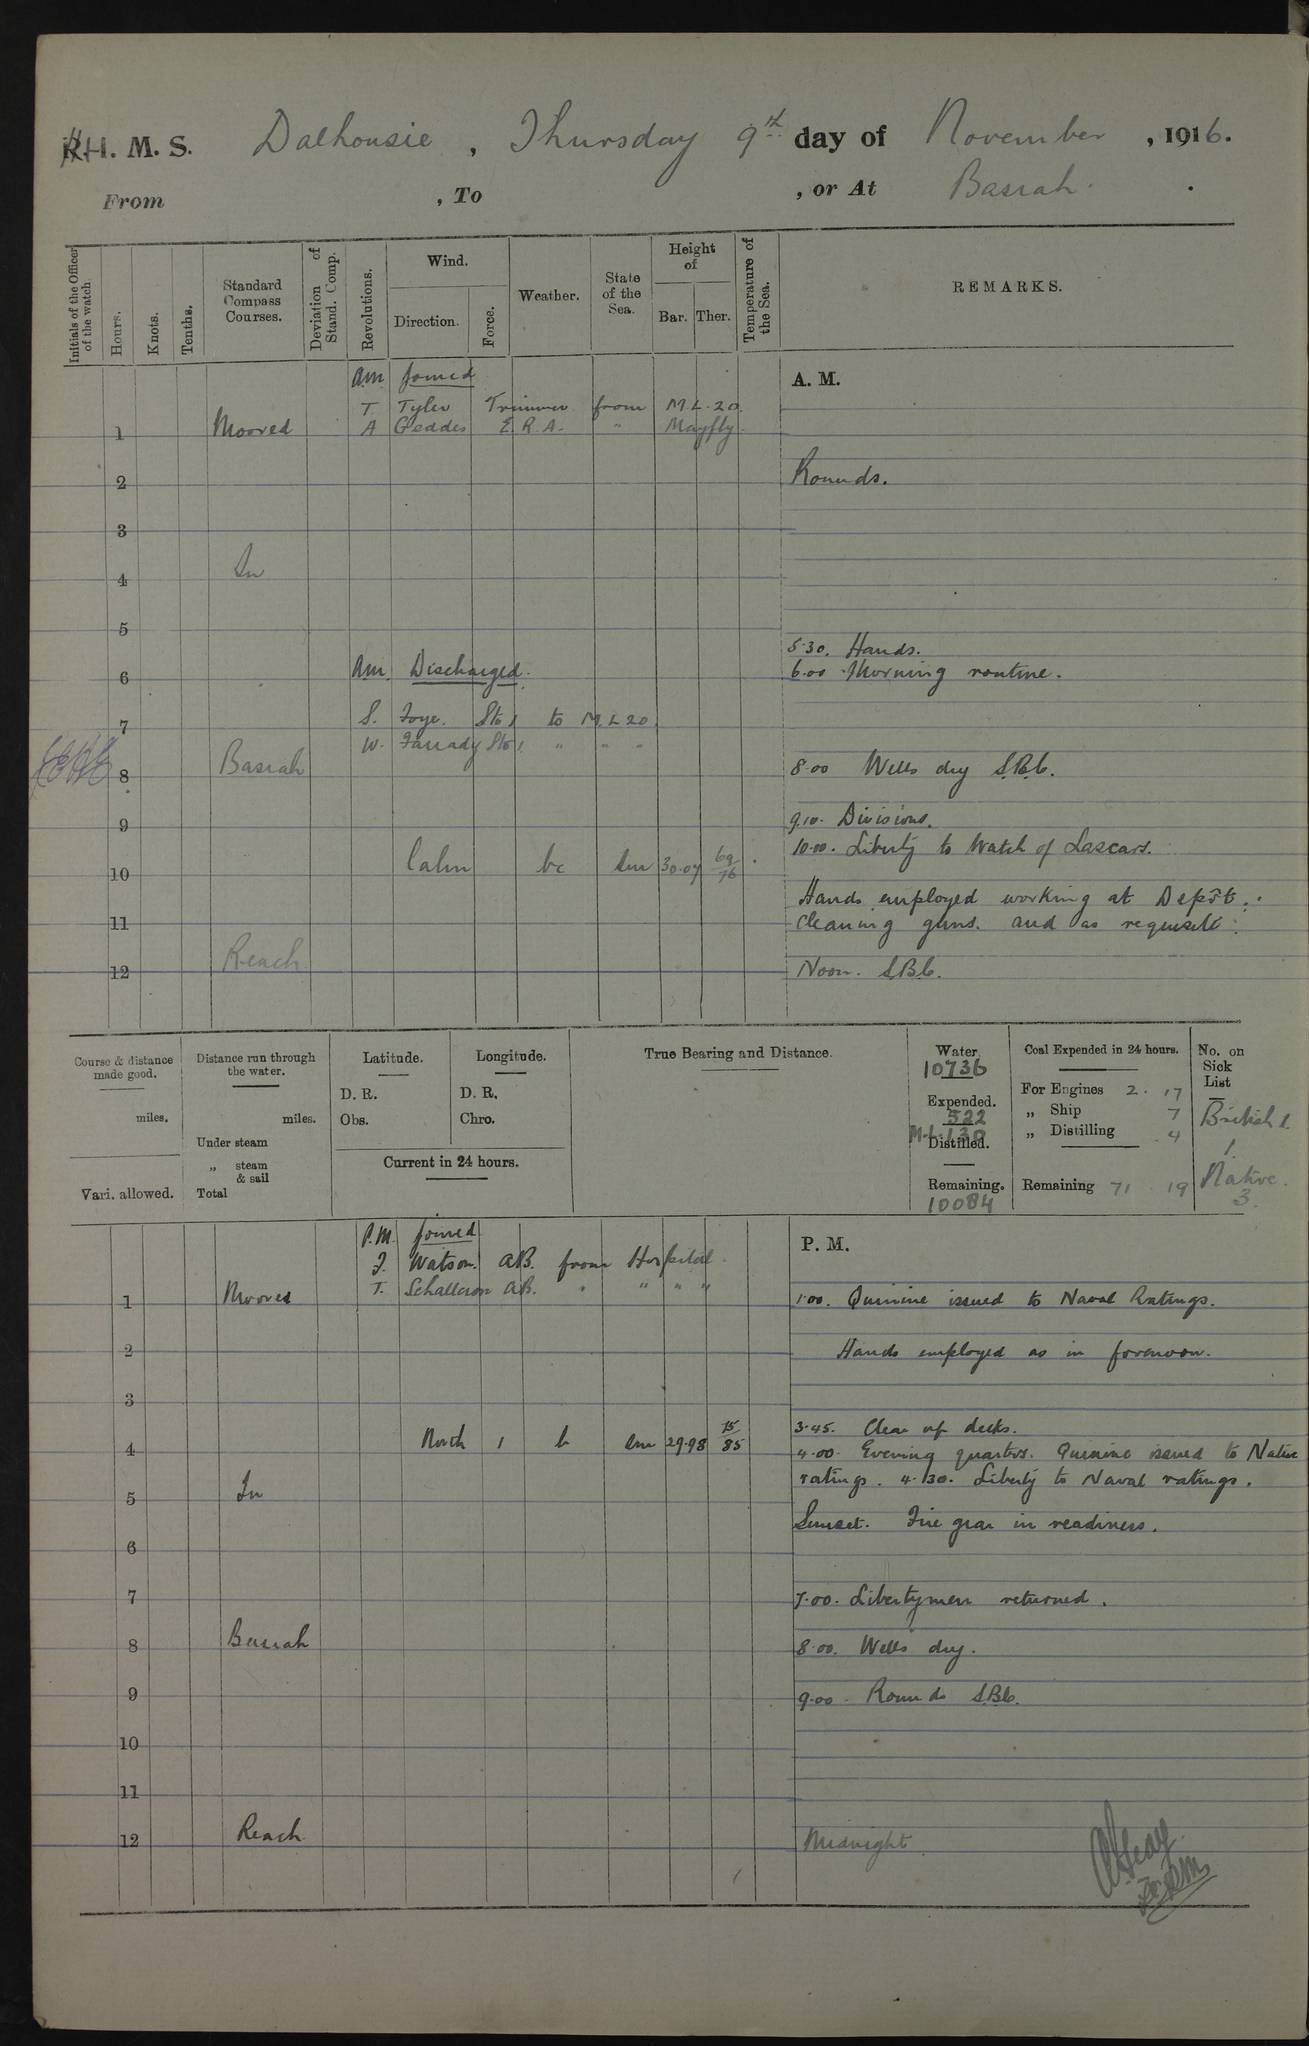 H. M. S. Dalhousie, Thursday 9th day of November, 1916.
From , To , or At Basrah.
Initials of the Officer of the watch
Hours.
Knots.
Tenths.
Standard Compass Courses.
Deviation of Stand. Comp.
Revolutions.
Wind.
Direction.
Force.
Weather.
State of the Sea.
Height of
Bar.
Ther.
Temperature of the Sea.
REMARKS.
am Joined
A. M.
T Tyler Trimmer from M.L.20
1 Moored A Geddes E.R.A. " Mayfly.
2 Rounds.
3
4 In
5
5.30. Hands.
6 am Discharged. 6.00 Morning routine.
7 S. Foye. Sto 1 to M.L 20.
W. Farrady Sto 1 " " "
8 Basrah 8.00 Wells dry S.B.C.
9 9.10. Divisions.
10.00. Liberty to Watch of Lascars.
10 Calm bc Sm 30.07 69/76
Hands employed working at Depôt.
11 Cleaning guns. and as requisite.
12 Reach Noon. S.B.C.
Course & distance made good.
miles.
Vari. allowed.
Distance run through the water.
miles.
Under steam
„ steam & sail
Total
Latitude.
D. R.
Obs.
Longitude.
D. R.
Chro.
Current in 24 hours.
True Bearing and Distance.
Water
10736
Expended.
522
M.L. 130
Distilled.
Remaining.
10084
Coal Expended in 24 hours.
For Engines 2 . 17
„ Ship 7
„ Distilling . 4
Remaining 71 . 19
No. on Sick List
British
1
Native.
3.
P.M. Joined
P. M.
J. Watson. AB. from Hospital.
T. AB. " " " "
1 Moored 1.00. Quinine issued to Naval Ratings.
2 Hands employed as in forenoon.
3
3.45. Clear up decks.
4 North 1 b Sm 29.98 75/85 4.00. Evening quarters. Quinine issued to Native
ratings. 4.30. Liberty to Naval ratings.
5 In
Sunset. Fire gear in readiness.
6
7 7.00. Libertymen returned.
8 Basrah 8.00. Wells dry.
9 9.00. Rounds S.B.C.
10
11
12 Reach Midnight